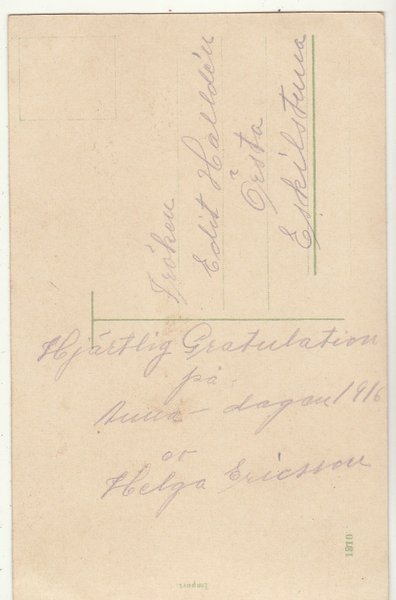 Fröken
Edit Halldén
Örsta
Eskilstuna
Hjärtlig Gratulation
på
Anna-dagen 1916
av
Helga Ericsson
1310
Import.